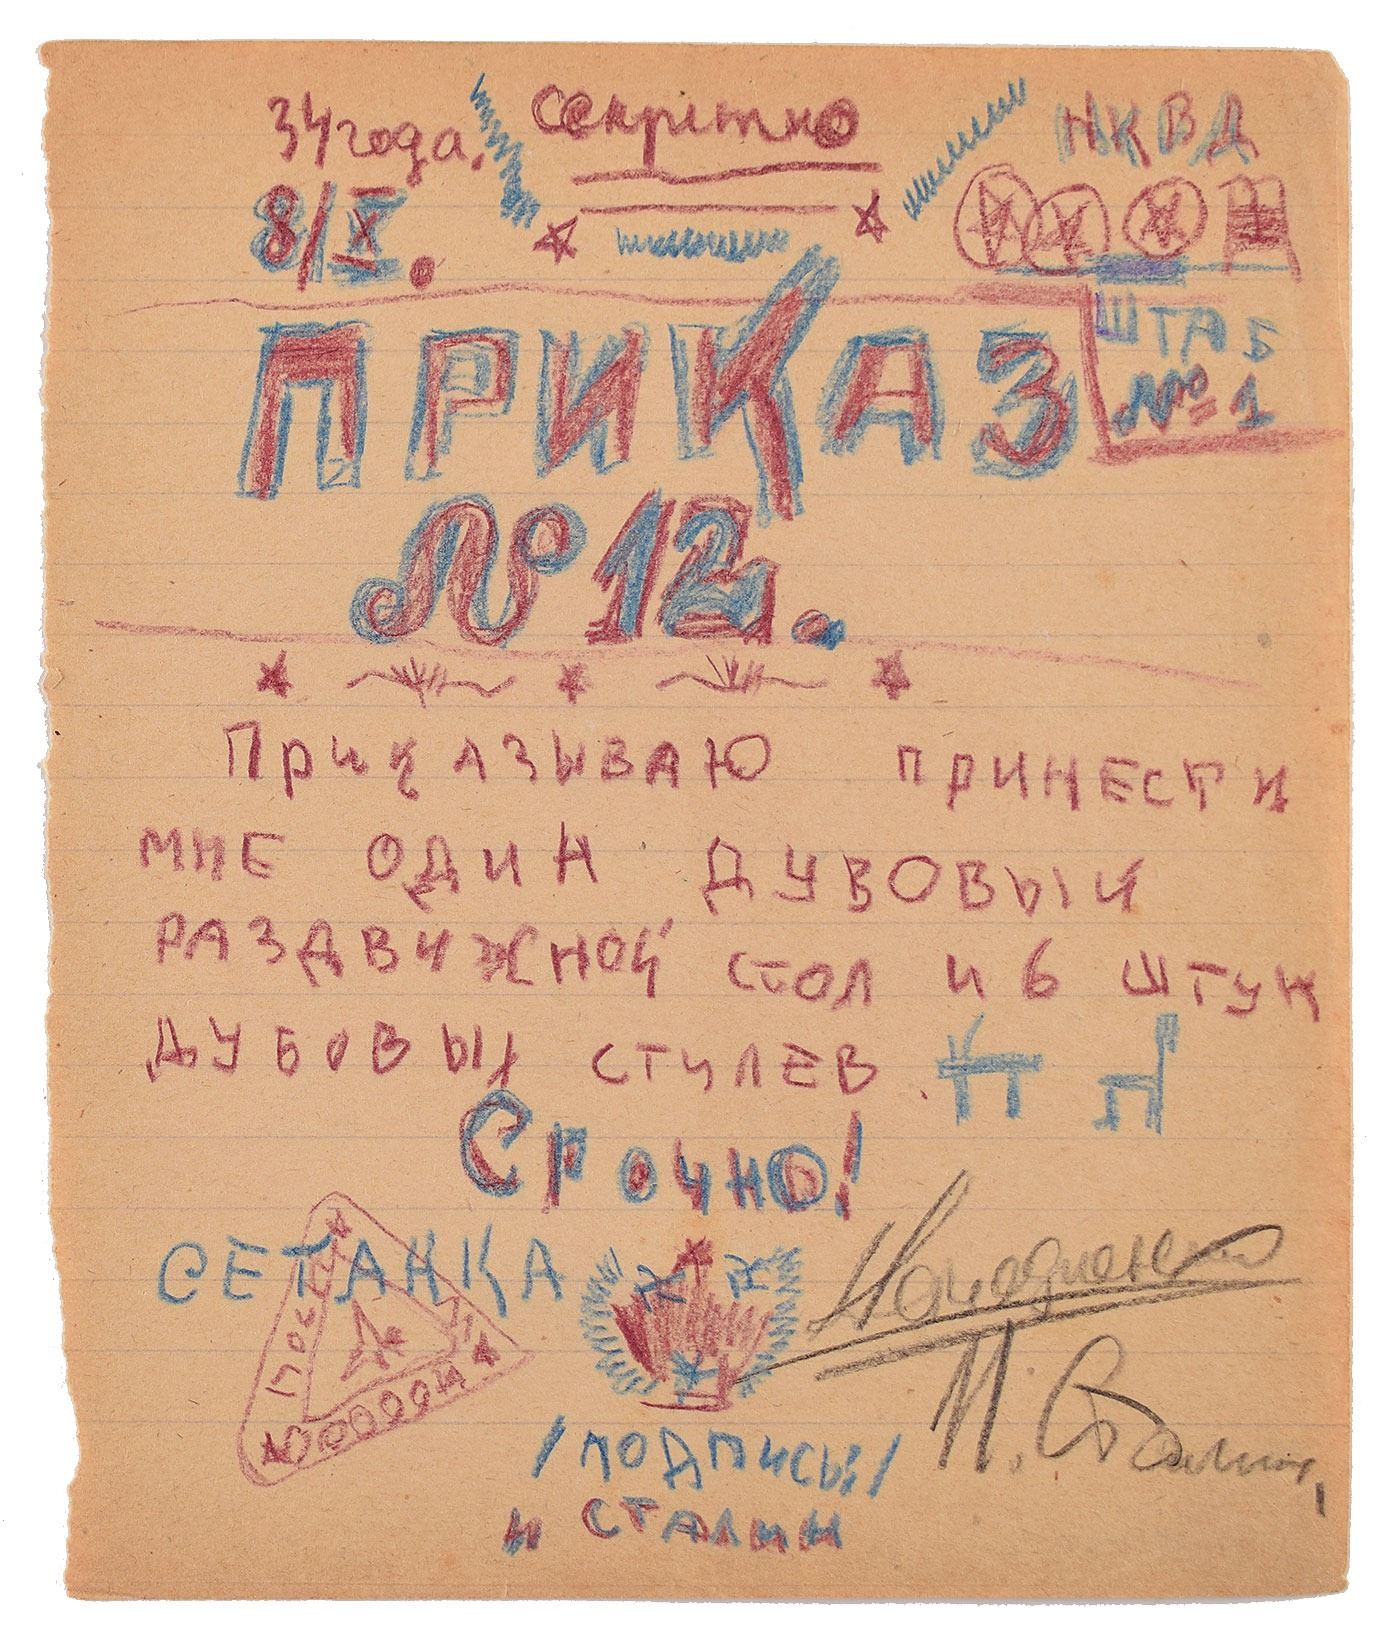 34 года. Секретно НКВД
8/X.
ШТАБ
№ 1
ПРИКАЗ
№ 12.
Приказываю принести
мне один дувовый
раздвижной стол и 6 штук
дубовых стулев.
Срочно!
СЕТАНКА
/подпись/
и СТАЛИН
И. Сталин